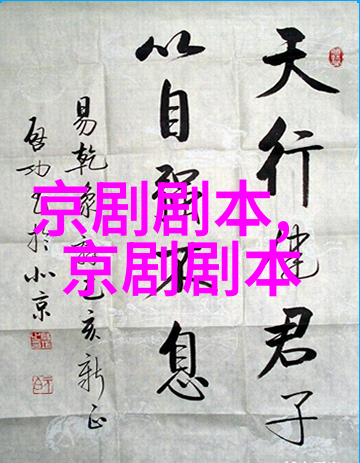 天行健君子
以自强不息
易乾象辞乙亥新正
启功书于北京
京剧剧本,
京剧剧本